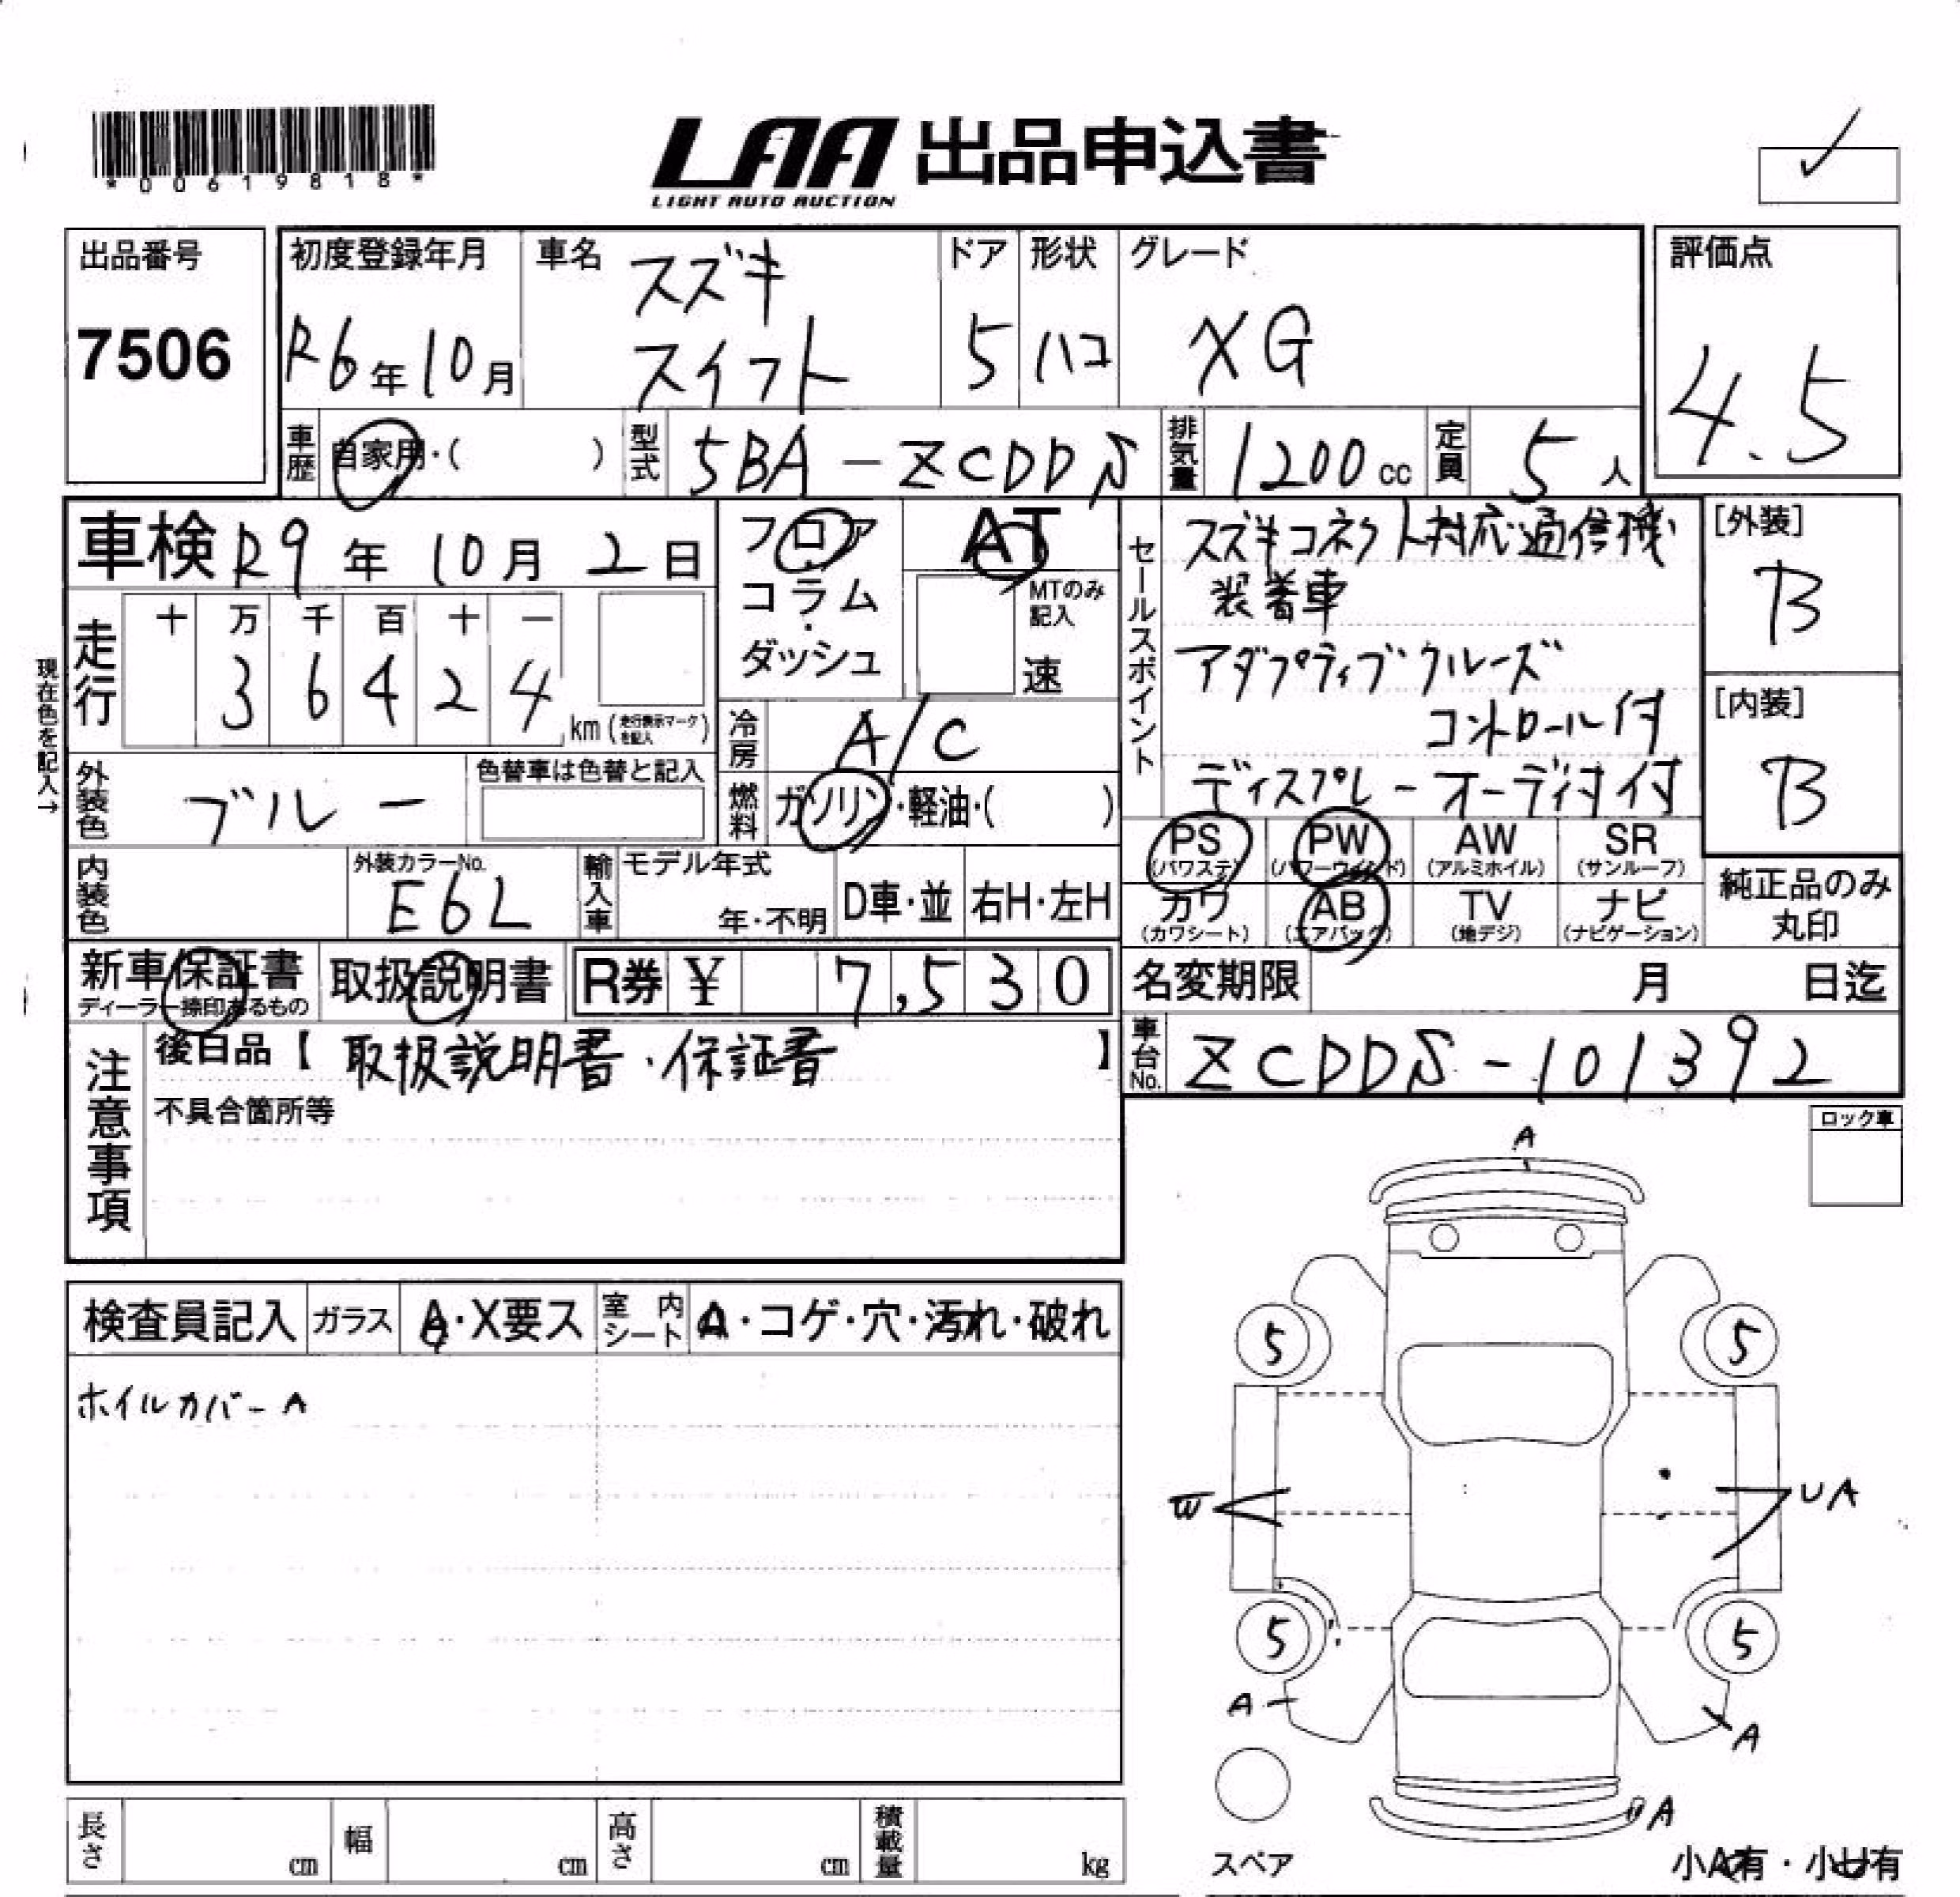 *00619818*
LAA 出品申込書
LIGHT AUTO AUCTION
出品番号
7506
初度登録年月
R6年10月
車名
スズキ
スイフト
ドア
5
形状
ハコ
グレード
XG
評価点
4.5
車歴
自家用・( )
型式
5BA-ZCDDS
排気量
1200cc
定員
5人
車検 R9年10月2日
フロア
コラム
・
ダッシュ
AT
MTのみ
記入
速
セールスポイント
スズキコネクト対応通信機
装着車
アダプティブクルーズ
コントロール付
ディスプレーオーディオ付
[外装]
B
[内装]
B
現在色を記入→
走行
十 万 千 百 十 一
3 6 4 2 4
km(走行表示マークを記入)
冷房
A/C
燃料
ガソリン・軽油・( )
外装色
ブルー
色替車は色替と記入
内装色
外装カラーNo.
E6L
輸入車
モデル年式
年・不明
D車・並
右H・左H
PS
(パワステ)
PW
(パワーウィンド)
AW
(アルミホイル)
SR
(サンルーフ)
カワ
(カワシート)
AB
(エアバッグ)
TV
(地デジ)
ナビ
(ナビゲーション)
純正品のみ
丸印
新車保証書
ディーラー捺印あるもの
取扱説明書
R券 ¥ 7,530
名変期限 月 日迄
車台No.
ZCDDS-101392
注意事項
後日品【取扱説明書・保証書】
不具合箇所等
ロック車
検査員記入
ガラス
A・X要ス
室内
シート
A・コゲ・穴・汚れ・破れ
ホイルカバーA
A
5
5
W
UA
5
5
A
A
A
スペア
小A有・小U有
長さ cm
幅 cm
高さ cm
積載量 kg